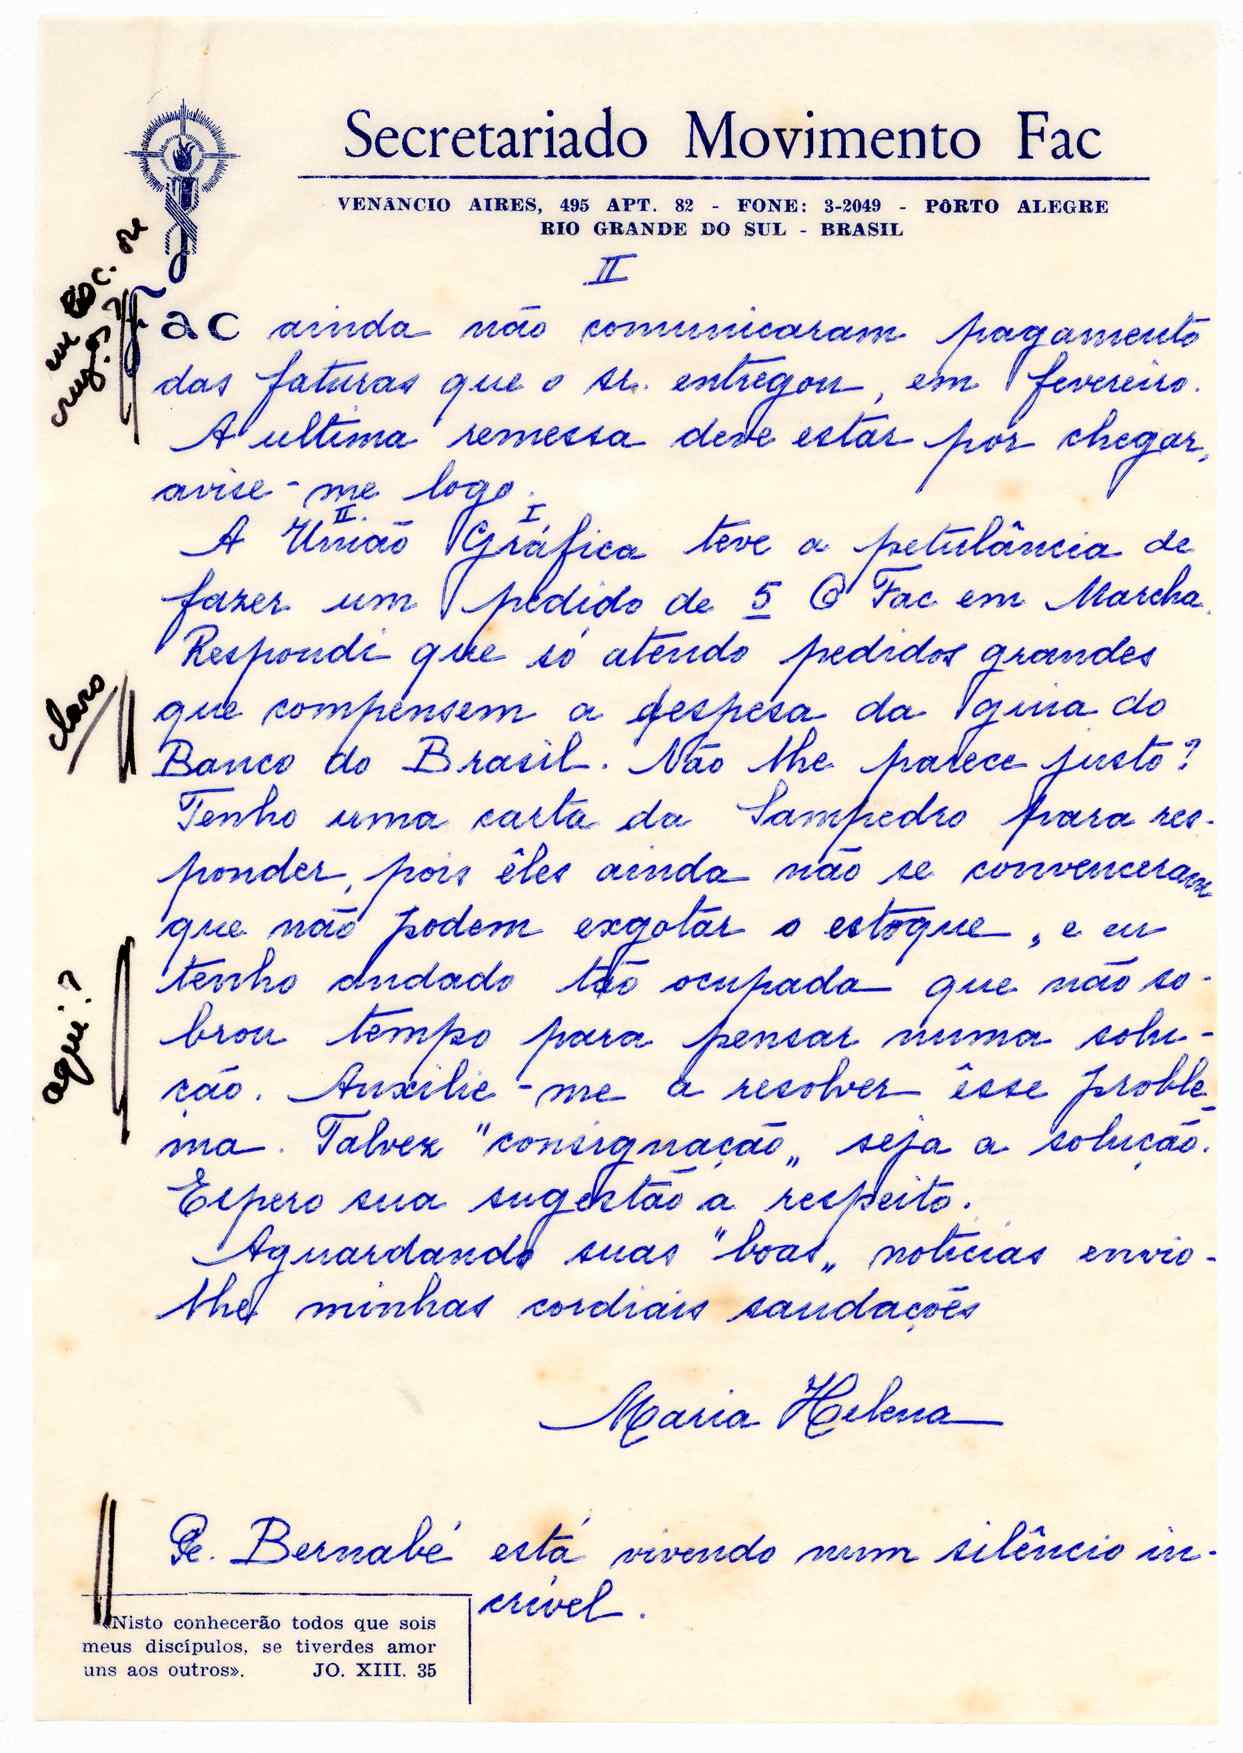 Secretariado Movimento Fac
VENÂNCIO AIRES, 495 APT. 82 - FONE: 3-2049 - PÔRTO ALEGRE
RIO GRANDE DO SUL - BRASIL
II
Fac ainda não comunicaram pagamento
das faturas que o sr. entregou, em fevereiro.
A ultima remessa deve estar por chegar,
avise-me logo.
II. I
A União Gráfica teve a petulância de
fazer um pedido de 5 Fac em Marcha.
Respondi que só atendo pedidos grandes
que compensem a despesa da guia do
claro
Banco do Brasil. Não lhe parece justo?
Tenho uma carta da Sampedro para res-
ponder, pois êles ainda não se convenceram
que não podem exgotar o estoque, e eu
tenho andado tão ocupada que não so-
aqui?
brou tempo para pensar numa solu-
ção. Auxilie-me a resolver êsse proble-
ma. Talvez "consignação„ seja a solução.
Espero sua sugestão a respeito.
Aguardando suas "boas„ notícias envio-
lhe minhas cordiais saudações
Maria Helena
Pe. Bernabé está vivendo num silêncio in-
crível.
«Nisto conhecerão todos que sois
meus discípulos, se tiverdes amor
uns aos outros». JO. XIII. 35